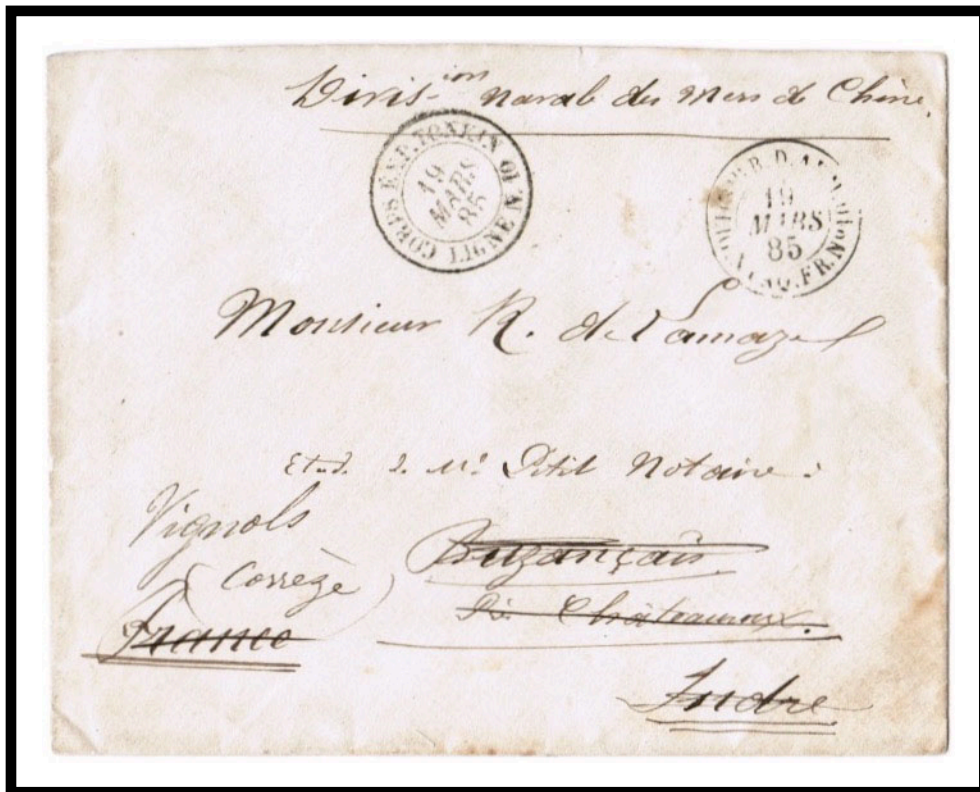 Divis-ion navale des Mers de Chine.
CORPS EXP. TONKIN
LIGNE N. Nº 10
19
MARS
85
19
MARS
85
PAQ. FR. Nº
Monsieur R. de Lamaze
Etud. de Me Petit Notaire.
Vignols
(Corrèze)
Buzançais
Châteauroux.
France
Indre